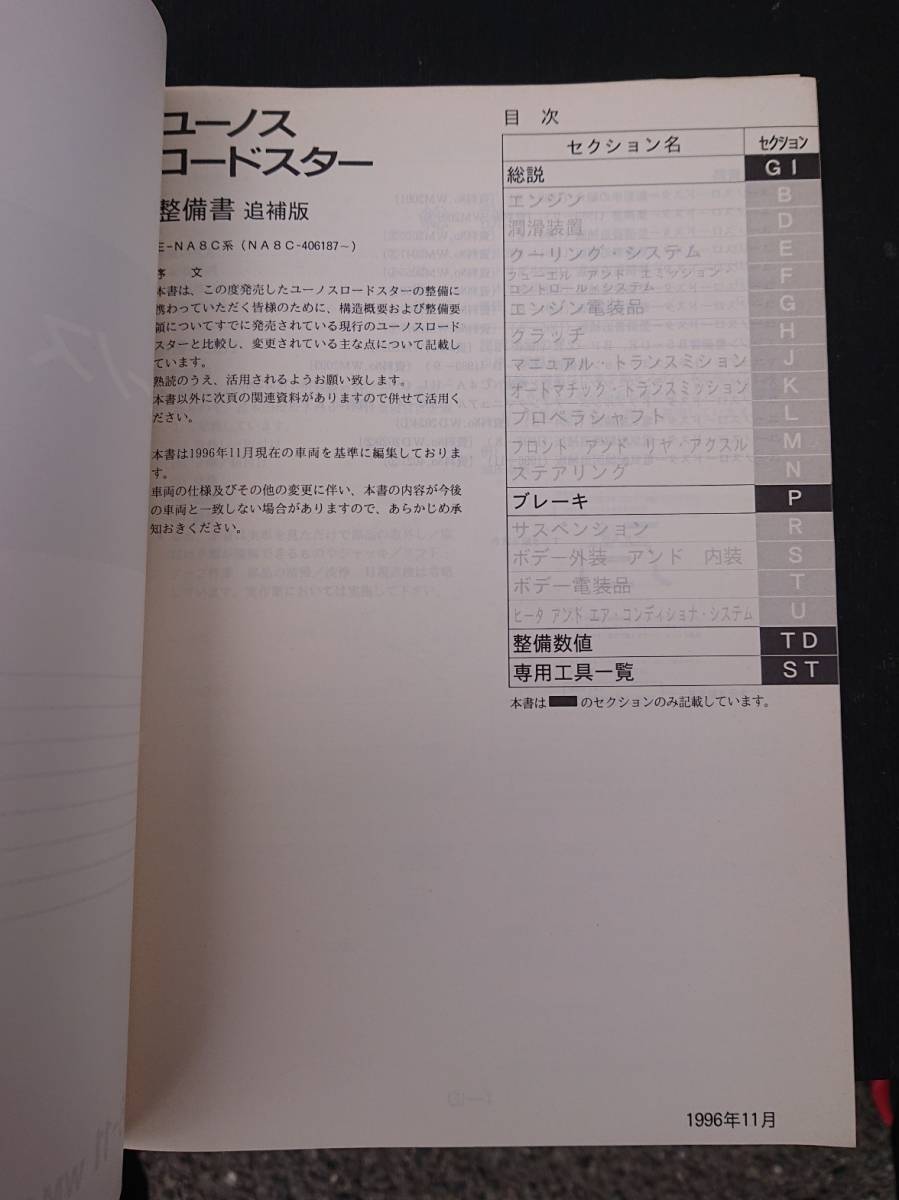 ユーノス
ロードスター
整備書 追補版
E-NA8C系 (NA8C-406187~)
序 文
本書は、この度発売したユーノスロードスターの整備に
携わっていただく皆様のために、構造概要および整備要
領についてすでに発売されている現行のユーノスロード
スターと比較し、変更されている主な点について記載し
ています。
熟読のうえ、活用されるようお願い致します。
本書以外に次頁の関連資料がありますので併せて活用く
ださい。
本書は1996年11月現在の車両を基準に編集しておりま
す。
車両の仕様及びその他の変更に伴い、本書の内容が今後
の車両と一致しない場合がありますので、あらかじめ承
知おきください。
目 次
セクション名 セクション
総説 GI
エンジン B
潤滑装置 D
クーリング・システム E
フューエル アンド エミッション・
コントロール・システム F
エンジン電装品 G
クラッチ H
マニュアル・トランスミション J
オートマチック・トランスミッション K
プロペラシャフト L
フロント アンド リヤ・アクスル M
ステアリング N
ブレーキ P
サスペンション R
ボデー外装 アンド 内装 S
ボデー電装品 T
ヒータ アンド エア・コンディショナ・システム U
整備数値 TD
専用工具一覧 ST
本書は のセクションのみ記載しています。
1996年11月